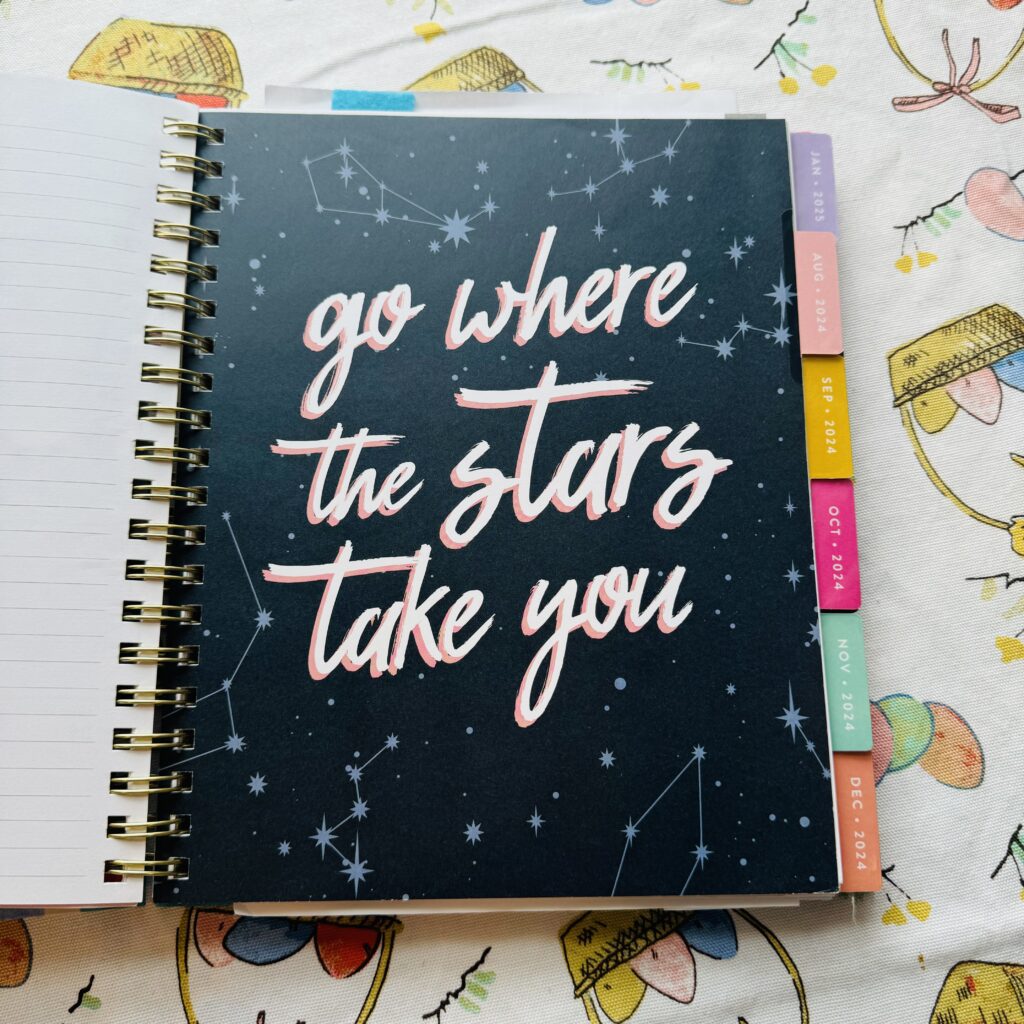 go where
the stars
take you
JAN • 2025
AUG • 2024
SEP • 2024
OCT • 2024
NOV • 2024
DEC • 2024